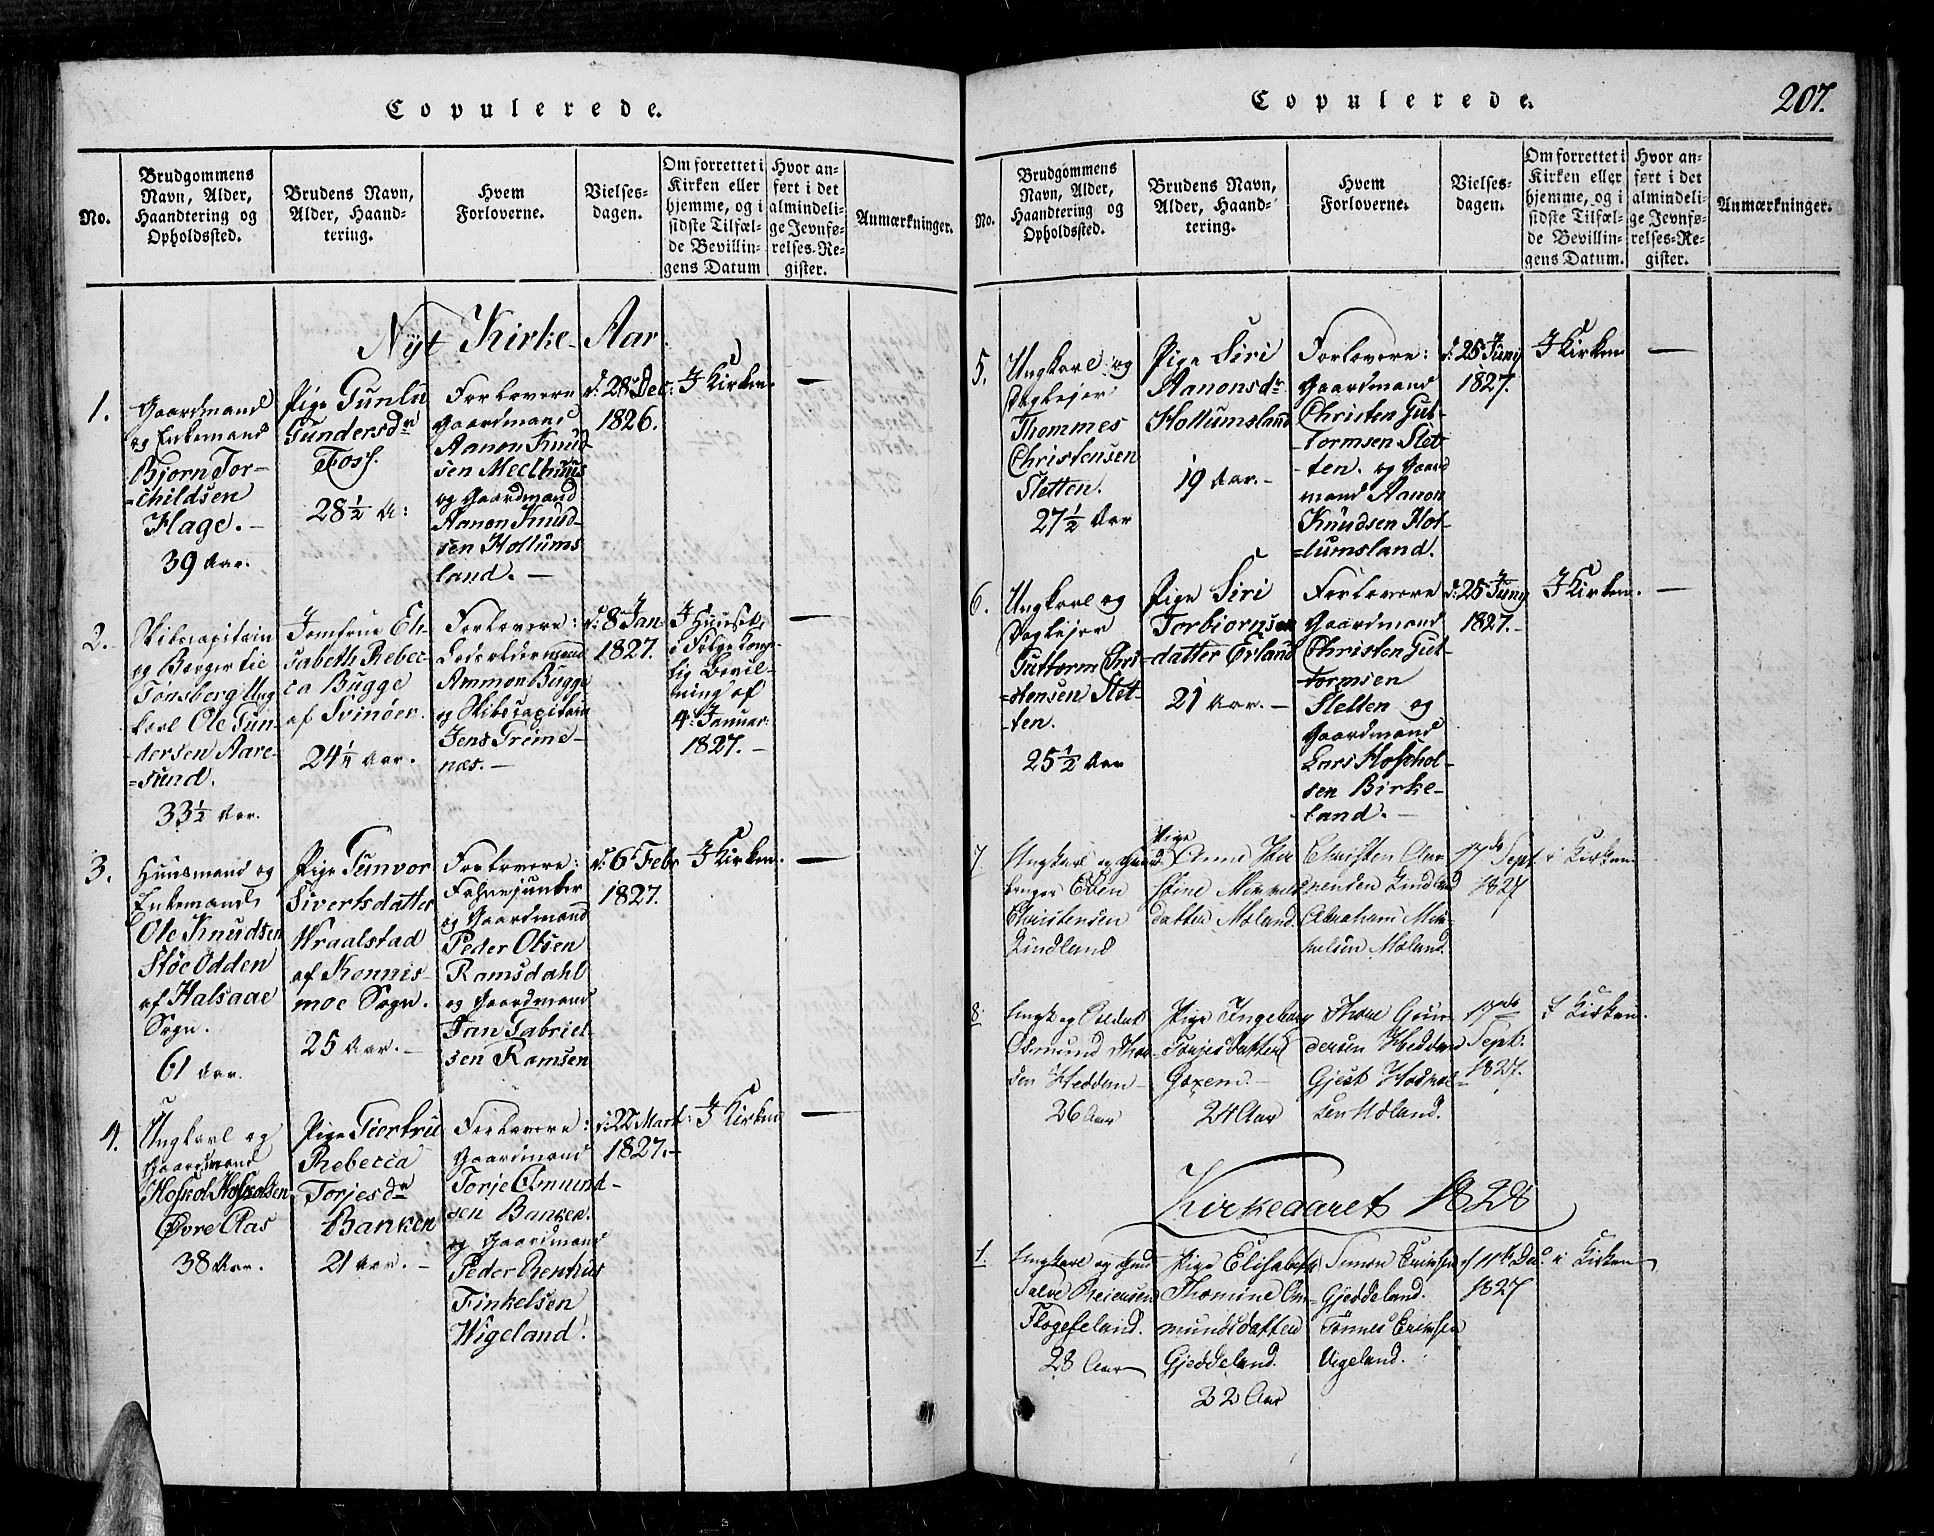 Copulerede.
No.
Brudgommens
Navn, Alder,
Haandtering og
Opholdssted.
Brudens Navn,
Alder, Haand-
tering.
Hvem
Forloverne.
Vielses-
dagen.
Om forrettet i
Kirken eller
hjemme, og i
sidste Tilfæl-
de Bevillin-
gens Datum
Hvor an-
ført i det
almindeli-
ge Jevnfø-
relses-Re-
gister.
Anmærkninger.
Nyt Kirke-Aar.
1.
Gaardmand
og Enkemand
Bjørn Tor-
=childsen
Hage.-
39 Aar.
Pige Gunlu
Gundersdr
Foss.
28½ A:
Forlovere
Gaardmand
Aanon Knud
sen Meelhuus
og Gaardmand
Aanon Knud-
sen Hollums
land.-
d: 28 Dec:
1826.
I Kirken.
—
2.
Skibscapitain
og Borger tie
Tønsberg Ung
karl Ole Gun
dersen Aare-
=sund.
33½ Aar.
Jomfrue Eli-
sabeth Rebec-
ca Bugge
af Svinøer.
24¼ Aar.
Forlovere:
Ammon Bugge
og Skibscapitain
Jens Grime-
næs.-
d: 8 Jan:
1827.
I Huuset,
i Følge Kong-
lig Bevil-
ning af
4: Januar
1827.-
—
3.
Huusmand og
Enkemand
Ole Knudsen
Støe Odden
af Halsaae
Sogn.
61 Aar.
Pige Gunvor
Sivertsdatter
Wraalstad
af Konnis-
moe Sogn.
25 Aar.-
Forlovere:
Fahnejunker
og Gaardmand
Peder Olsen
Ramsdahl
og Gaardmand
Jan Gabriel-
sen Ramsen
d: 6 Febr
1827.
I Kirken.
—
4.
Ungkarl og
Gaardmand
Øvre Aas
38 Aar.
Pige Giertru
Rebecca
Torjesdr
Banken
21 Aar.-
Forlovere:
Gaardmand
Torje Osmund-
sen Banken.
og Gaardmand
Peder Renhus
Finkelsen
Wigeland.
d: 22 Mart:
1827.-
I Kirken
—
Copulerede.
207.
No.
Brudgommens
Navn, Alder,
Haandtering og
Opholdssted.
Brudens Navn,
Alder, Haand-
tering.
Hvem
Forloverne.
Vielses-
dagen.
Om forrettet i
Kirken eller
hjemme, og i
sidste Tilfæl-
de Bevillin-
gens Datum.
Hvor an-
ført i det
almindeli-
ge Jevnfø-
relses-Re-
gister.
Anmærkninger.
5.
Ungkarl og
Thommes
Christensen
Sletten.
27½ Aar
Pige Siri
Aanonsdr
Hollumsland
19 Aar.-
Forlovere:
Gaardmand
Christen Gut-
tormsen Slet-
-ten. og Gaard
mand Aanon
Knudsen Hol-
=lumsland.
d: 25 Juny
1827.
I Kirken
—
6.
Ungkarl og
Guttorm Chri-
=stensen Slet-
-ten.
25½ Aar
Pige Siri
Torbiornsen
=datter Erland
21 Aar.-
Forlovere
Gaardmand
Christen Gut-
tormsen
Sletten og
Gaardmand
Lars Hofshol-
sen Birke-
land.-
d: 25 Juny
1827.-
I Kirken.
—
7
Ungkarl og Gaard
bruger Eben
Christensen
Lindland
Pige
Anne Kir
stine Mikkels
datter Moland.
Christen Aar
nensen Lindland
Abraham Mik
kelsen Moland.
17de Sept.
1827
i Kirken
8.
Ungk og Soldat
Osmund Thor-
sen Heddan-
26 Aar
Pige Ingeborg
Torjesdatter
24 Aar
Thore Gun
dersen Heddan
Gjest Hodnel-
sen Moland.
17de
Sept:
1827.
I Kirken.
Kirkeaaret 1828
1
Ungkarl og Gmd
Salve Reiersen
28 Aar
Pige Elisabeth
Thomine Os-
mundsdatter
Gjeddeland.
32 Aar
Simon Eriksen
Gjeddeland.
Tønnes Eriksen
Vigeland.
11te Dec
1827
i Kirken